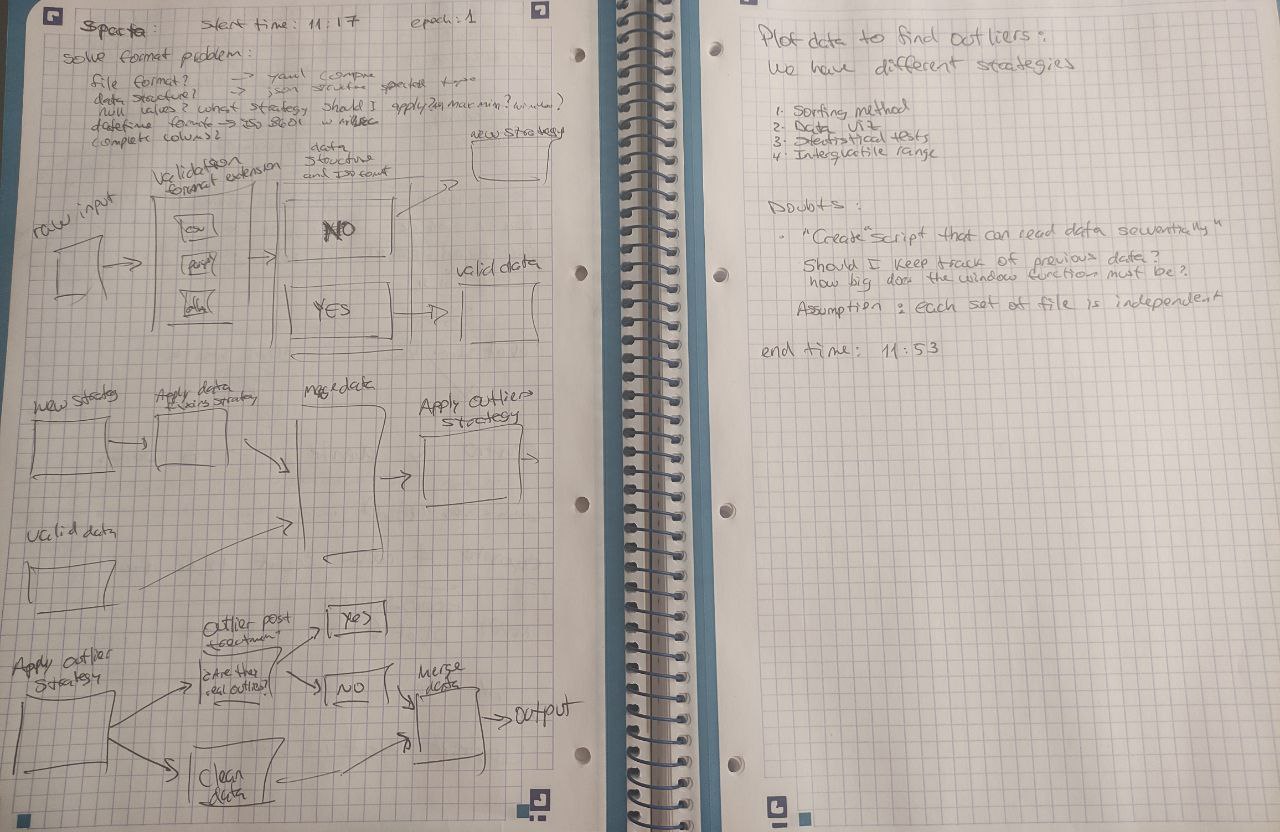 Sparta: start time: 11:17 epoch: 1
solve format problem:
file format? → yaml
data structure? → json
null values? what strategy should I apply? max min?
datetime formats → ISO 8601
complete columns?
new strategy
Validation format extension
data structure and ISO
raw input
csv
NO
valid data
YES
new strategy
Apply data strategy
merge data
Apply outliers strategy
valid data
Outlier post treatment
YES
Apply outlier strategy
¿Are they real outliers?
NO
Merge data
output
Clean data
Plot data to find outliers:
We have different strategies
1. Sorting method
2. Data viz
3. Statistical tests
4. Interquatile range
Doubts:
- "Create "script that can read data sewentially"
Should I keep track of previous data?
how big does the window function must be?
Assumption: each set of file is independent
end time: 11:53